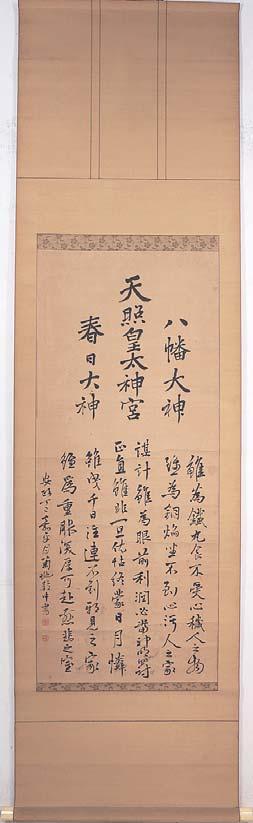 八幡大神
天照皇太神宮
春日大神
雖為鐵丸食不受心穢人之物
雖為銅焔坐不到心汚人之家
謀計雖為眼前利潤必當神明罰
正直雖非一旦依怙終蒙日月憐
雖曳千日注連不到邪見之家
雖為重服深厚可赴慈悲之室
安政丁巳嘉平 菊池教中書